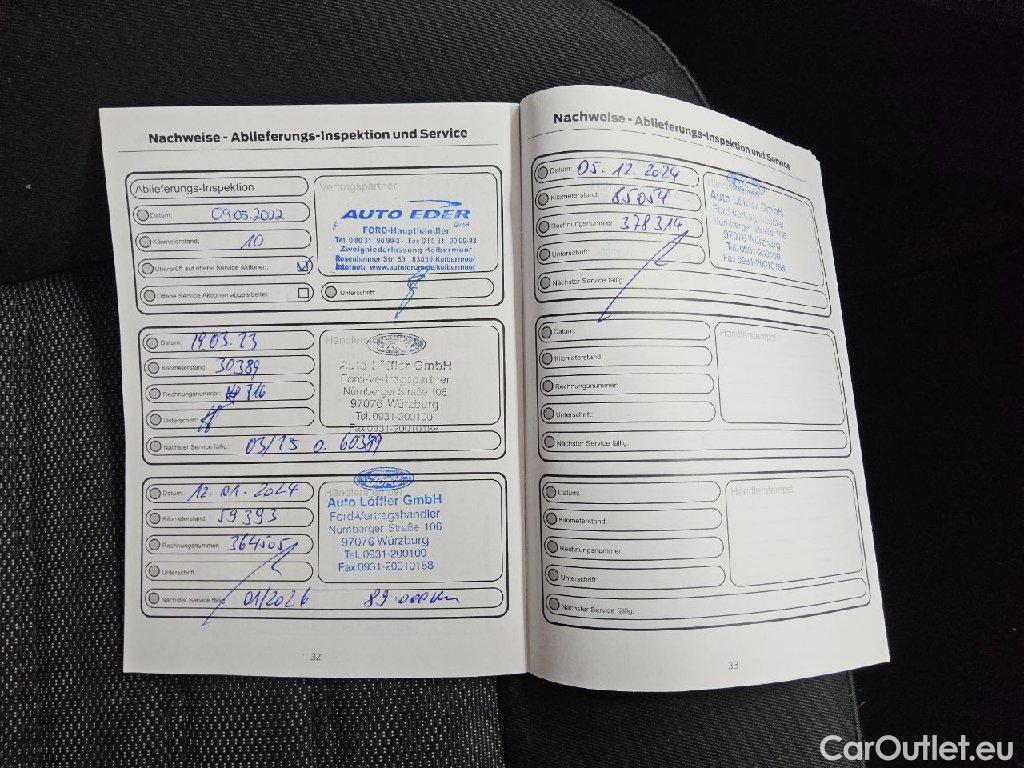 Nachweise - Ablieferungs-Inspektion und Service
Ablieferungs-Inspektion
Datum: 09.05.2022
Kilometerstand: 10
Überprüft auf offene Service Aktionen:
Offene Service Aktionen abgearbeitet:
Vertragspartner
AUTO EDER
GmbH
FORD-Haupthändler
Zweigniederlassung Kolbermoor
Rosenheimer Str 59 · 83059 Kolbermoor
Unterschrift:
Datum: 19.03.23
Kilometerstand: 30389
Rechnungsnummer: 716
Unterschrift:
Nächster Service fällig: 03/25 o. 60389
Auto Löffler GmbH
Ford-Vertragspartner
Nürnberger Straße 106
97076 Würzburg
Tel. 0931-200100
Fax 0931-20010188
Datum: 12.01.2024
Kilometerstand: 59393
Rechnungsnummer: 364505
Unterschrift:
Nächster Service fällig: 01/2026 89.000km
Händlerstempel
Auto Löffler GmbH
Ford-Vertragshändler
Nürnberger Straße 106
97076 Würzburg
Tel. 0931-200100
Fax 0931-20010188
32
Nachweise - Ablieferungs-Inspektion und Service
Datum: 05.12.2024
Kilometerstand: 85054
Rechnungsnummer: 378314
Unterschrift:
Nächster Service fällig:
Auto Löffler GmbH
Ford-Vertragshändler
Nürnberger Straße 106
97076 Würzburg
Tel. 0931-200100
Fax 0931-20010188
Datum:
Kilometerstand:
Rechnungsnummer:
Unterschrift:
Nächster Service fällig:
Händlerstempel
Datum:
Kilometerstand:
Rechnungsnummer:
Unterschrift:
Nächster Service fällig:
Händlerstempel
33
CarOutlet.eu